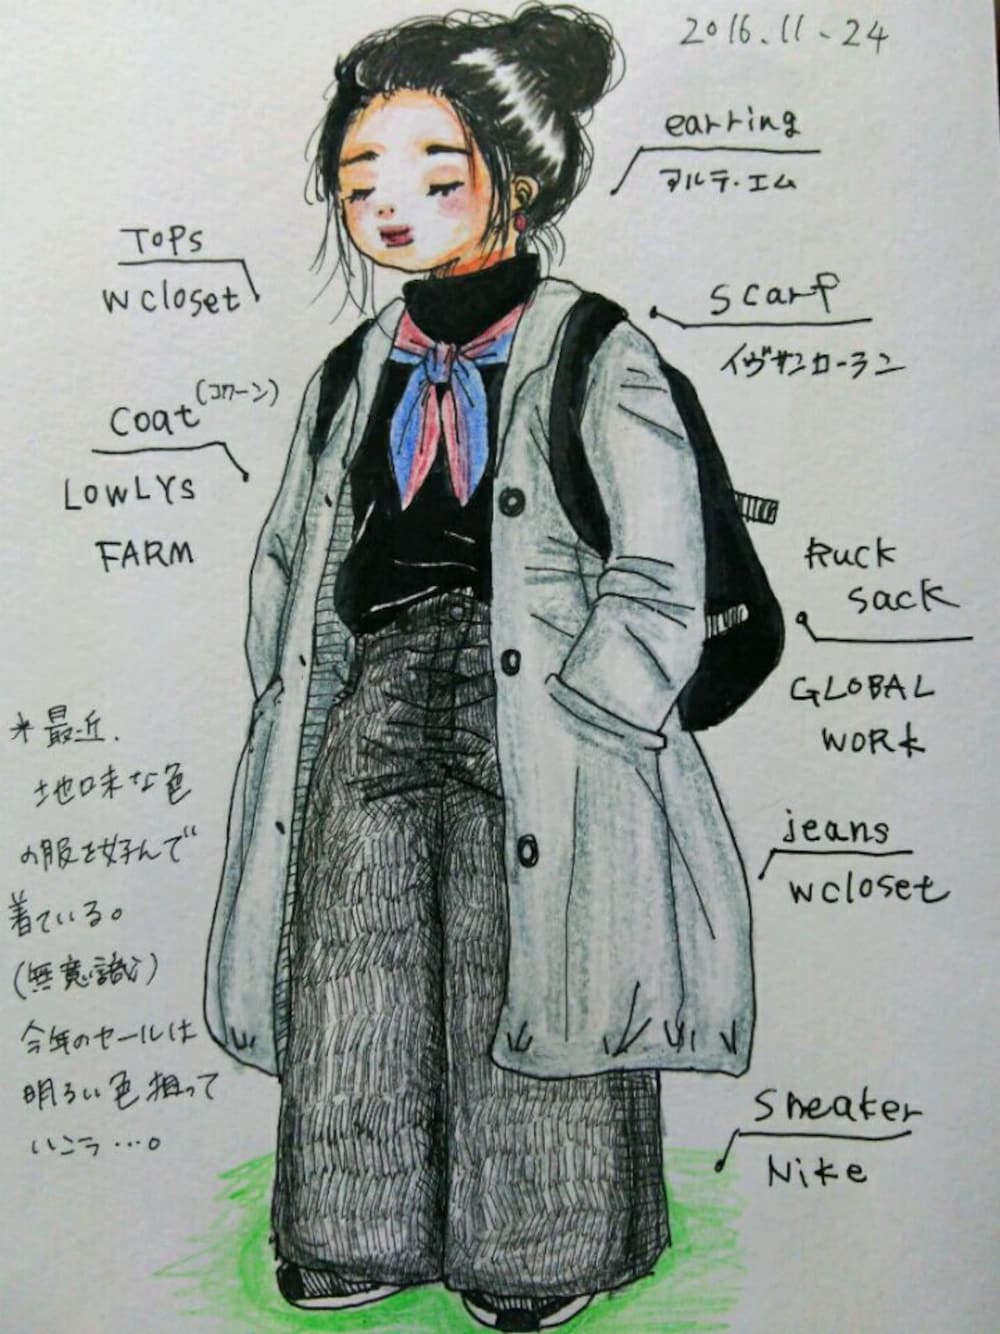 2016.11.24
earring
アルテ・エム
TOPS
W closet
scarf
イヴサンローラン
coat (コクーン)
LOWLYS
FARM
RUCK
sack
GLOBAL
WORK
jeans
W closet
sneaker
Nike
*最近、
地味な色
の服を好んで
着ている。
(無意識)
今年のセールは
明るい色狙って
いこう…。